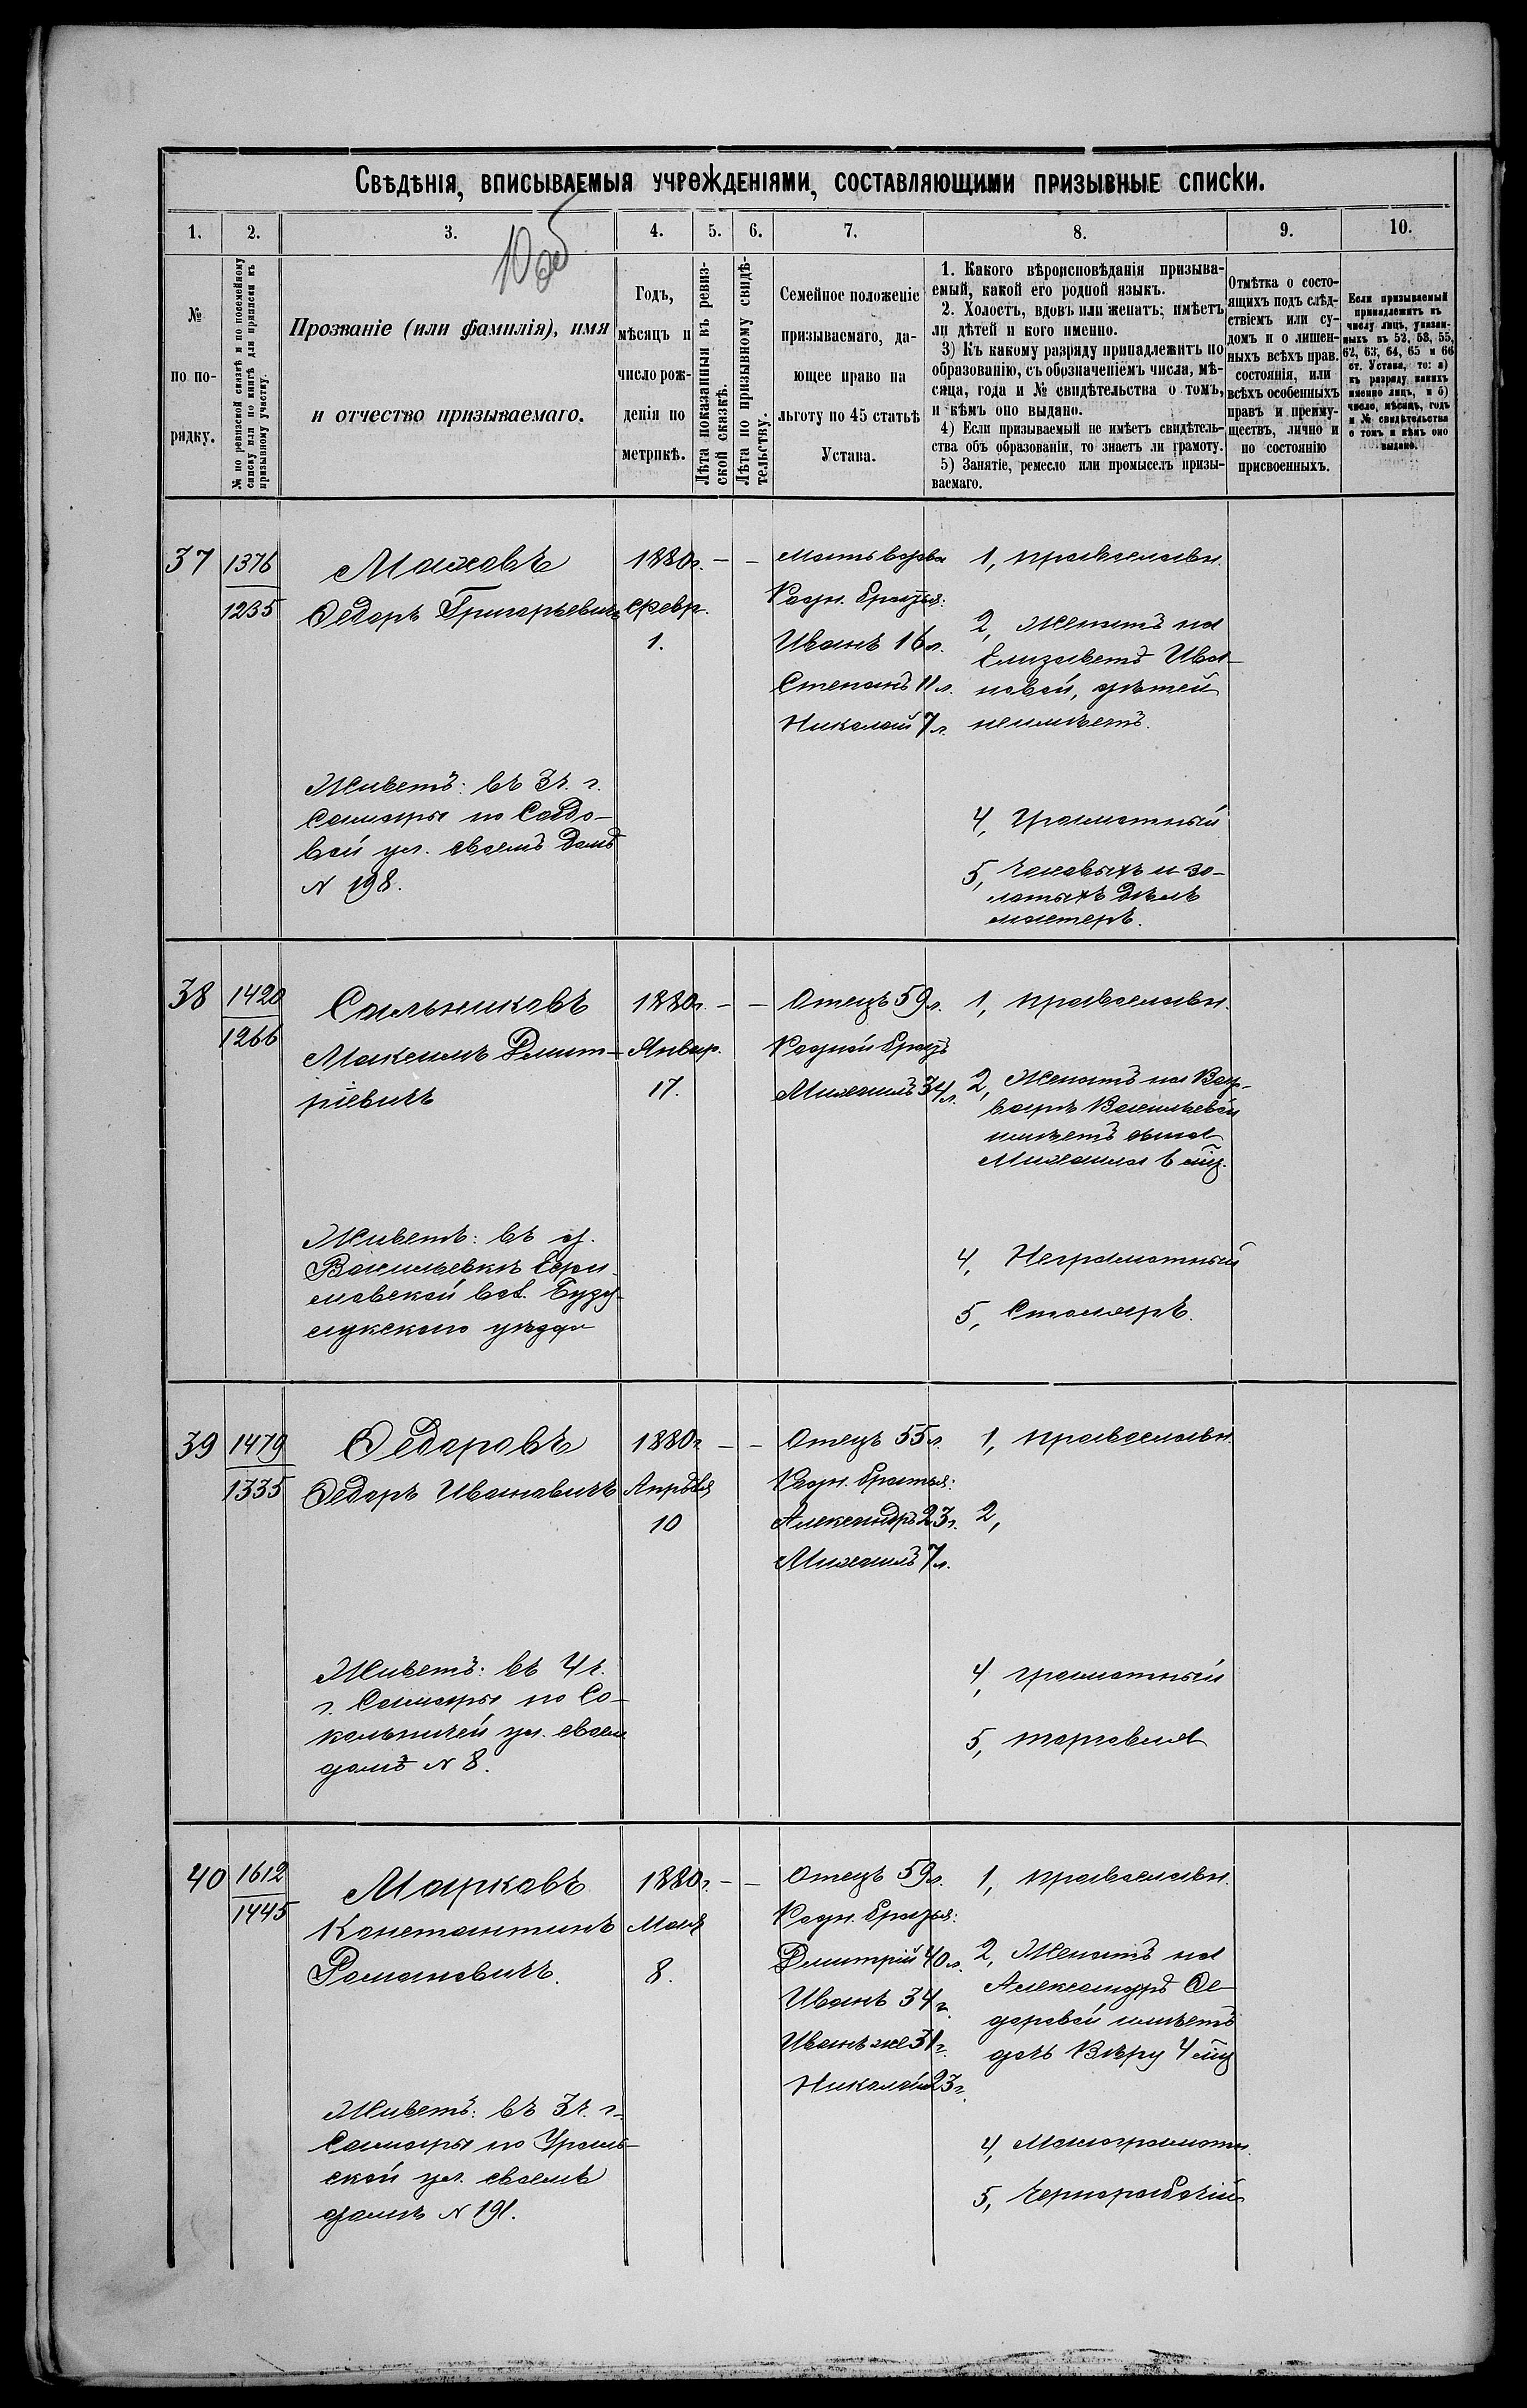 Свѣдѣнія, вписываемыя учрежденіями, составляющими призывные списки.
1.
2.
3.
4.
5.
6.
7.
8.
9.
10.
№
по по-
рядку.
№ по ревизской сказкѣ и по посемейному
списку или по книгѣ для приписки къ
призывному участку.
Прозваніе (или фамилія), имя
и отчество призываемаго.
Годъ,
мѣсяцъ и
число рож-
денія по
метрикѣ.
Лѣта показанныя въ ревиз-
ской сказкѣ.
Лѣта по призывному свидѣ-
тельству.
Семейное положеніе
призываемаго, да-
ющее право на
льготу по 45 статьѣ
Устава.
1. Какого вѣроисповѣданія призыва-
емый, какой его родной языкъ.
2. Холостъ, вдовъ или женатъ; имѣетъ
ли дѣтей и кого именно.
3) Къ какому разряду принадлежитъ по
образованію, съ обозначеніемъ числа, мѣ-
сяца, года и № свидѣтельства о томъ,
и кѣмъ оно выдано.
4) Если призываемый не имѣетъ свидѣтель-
ства объ образованіи, то знаетъ ли грамоту.
5) Занятіе, ремесло или промыселъ призы-
ваемаго.
Отмѣтка о состо-
ящихъ подъ слѣд-
ствіемъ или су-
домъ и о лишен-
ныхъ всѣхъ прав.
состоянія, или
всѣхъ особенныхъ
правъ и преиму-
ществъ, лично и
по состоянію
присвоенныхъ.
Если призываемый
принадлежитъ къ
числу лицъ, указан-
ныхъ въ 52, 53, 55,
62, 63, 64, 65 и 66
ст. Устава, то: а)
къ разряду какихъ
именно лицъ, и б)
число, мѣсяцъ, годъ
и № свидѣтельства
о томъ и кѣмъ оно
выдано.
37
1376
1235
Маховъ
Ѳедоръ Григорьевичъ
Живетъ: въ 3 ч. г.
Самары по Садо-
вой ул. своемъ домѣ
№ 198.
1880 г.
Февр.
1.
—
—
Мать вдова
Родн. братья:
Иванъ 16 л.
Степанъ 11 л.
Николай 7 л.
1, православн.
2, Женатъ на
Елизаветѣ Ива-
новой, дѣтей
неимѣетъ.
4, Грамотный
5, Часовыхъ и зо-
лотыхъ дѣлъ
мастеръ.
38
1420
1266
Сальниковъ
Максимъ Дмит-
ріевичъ
Живетъ: въ д.
Васильевкѣ
вол. Бузу-
лукскаго уѣзда
1880 г.
Январ.
17.
—
—
Отецъ 59 л.
Родной братъ
Михаилъ 34 л.
1, православн.
2, Женатъ на Вар-
варѣ Васильевой
имѣетъ сына
Михаила 6 мѣс.
4, Неграмотный
5, Столяръ.
39
1479
1335
Ѳедоровъ
Ѳедоръ Ивановичъ
Живетъ: въ 4 ч.
г. Самары по Со-
кольничей ул. своем
домѣ № 8.
1880 г
Апрѣля
10
—
—
Отецъ 55 л.
Родн. братья:
Александръ 23 г.
Михаилъ 7 л.
1, православн.
2,
4, грамотный
5, торговля
40
1612
1445
Марковъ
Константинъ
Романовичъ.
Живетъ: въ 3 ч. г.
Самары по Ураль-
ской ул. своемъ
домѣ № 191.
1880 г.
Мая
8.
—
—
Отецъ 59 л.
Родн. братья:
Дмитрій 40 л.
Иванъ 34 г.
Иванъ же 31 г.
Николай 23 г.
1, православн.
2, Женатъ на
Александрѣ Ѳе-
доровой имѣетъ
дочь Вѣру 4 мѣс
4, Малограмотн.
5, Чернорабочій